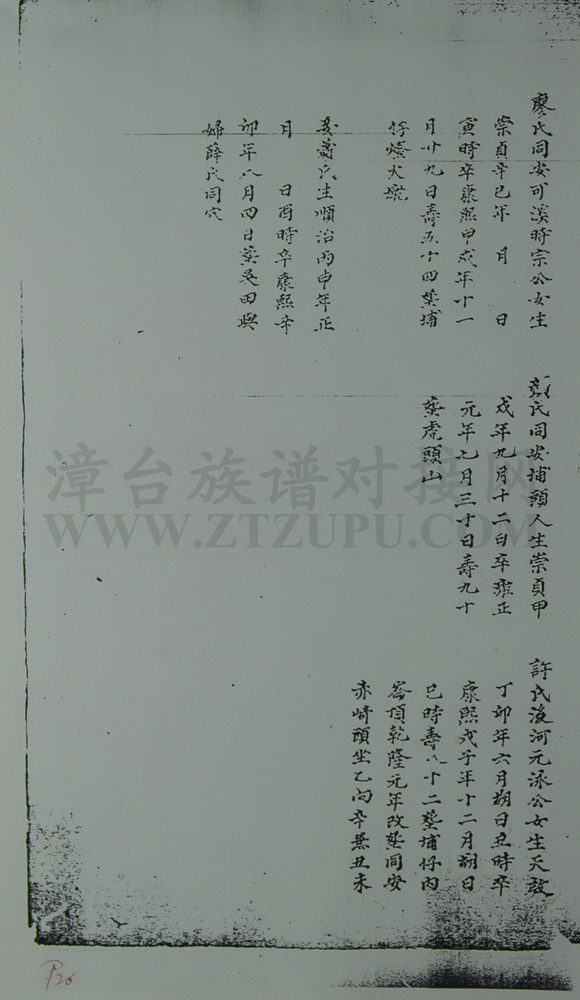 廖氏同安可溪時宗公女生
崇貞辛巳年 月 日
寅時卒康熙甲戌年十一
月廿九日壽五十四葬埔
仔燈火號
妾黃氏生順治丙申年正
月 日酉時卒康熙辛
卯年八月四日葬吳田與
婦薛氏同穴
氏同安埔頭人生崇貞甲
戌年九月十二日卒雍正
元年七月三十日壽九十
葬虎頭山
許氏後河元泳公女生天啟
丁卯年六月朔日丑時卒
康熙戊子年十二月朔日
巳時壽八十二塟埔仔內
崙頂乾隆元年改塟同安
赤崎頭坐乙向辛兼丑未
漳台族谱对接网
WWW.ZTZUPU.COM
P26